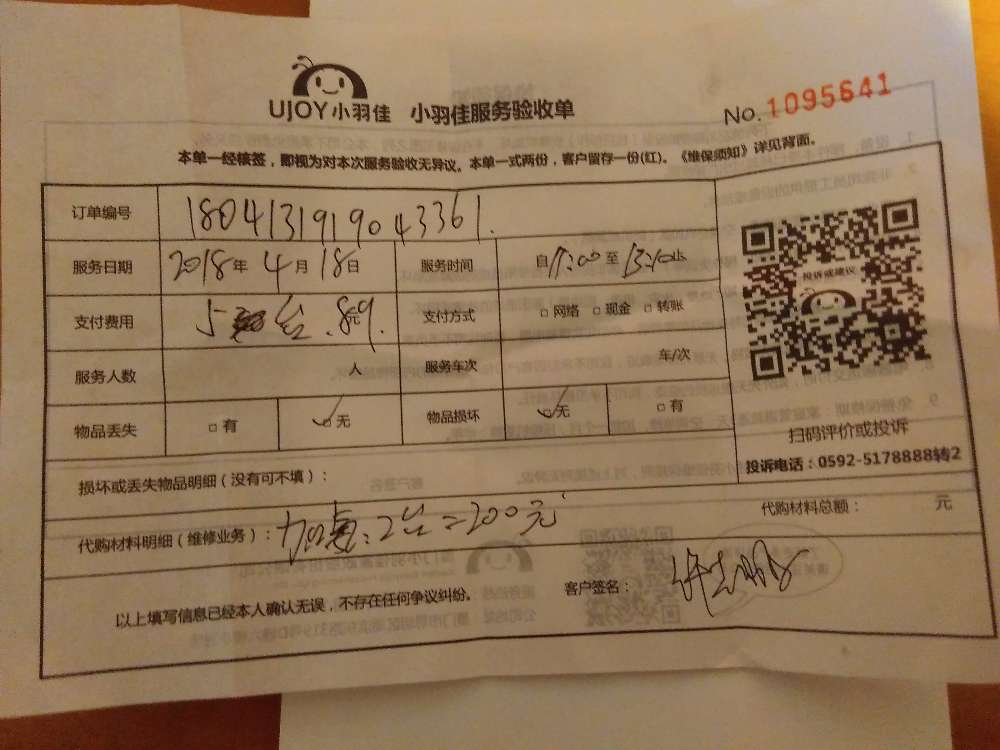 UJOY小羽佳 小羽佳服务验收单
No. 1095641
本单一经核签，即视为对本次服务验收无异议。本单一式两份，客户留存一份(红)。《维保须知》详见背面。
订单编号 1804131919043361.
服务日期 2018年4月18日 服务时间 自 至
支付费用 5 台. 支付方式 □ 网络 □ 现金 □ 转账
服务人数 人 服务车次 车/次
物品丢失 □ 有 ✓无 物品损坏 ✓无 □ 有
投诉或建议
扫码评价或投诉
投诉电话：0592-5178888转2
损坏或丢失物品明细（没有可不填）：
代购材料明细（维修业务）：加氟：2台=200元
代购材料总额： 元
以上填写信息已经本人确认无误，不存在任何争议纠纷。
客户签名：